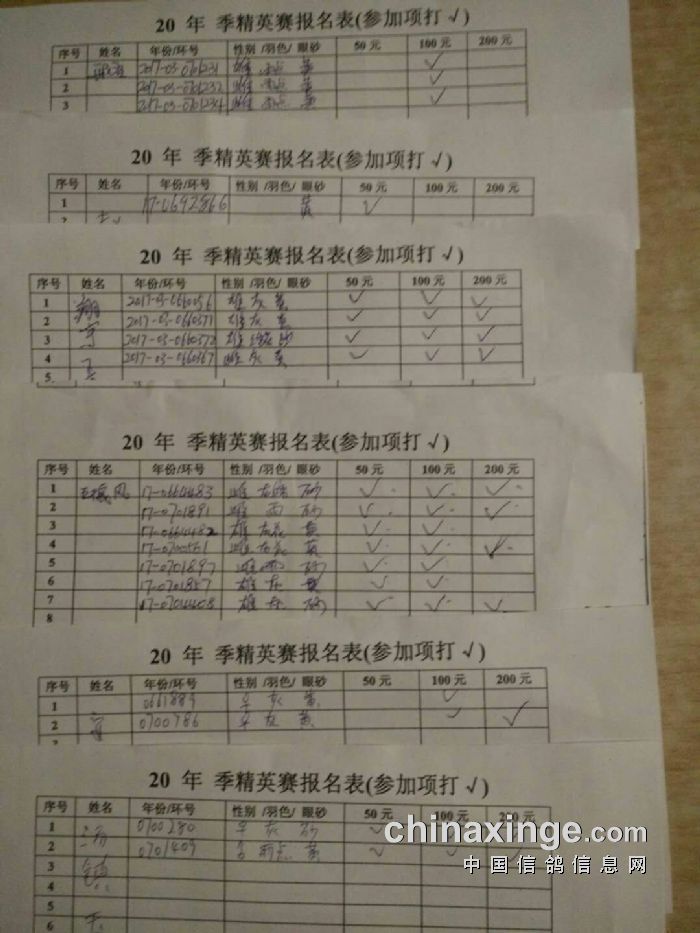 20 年 季精英赛报名表(参加项打 √)
序号 姓名 年份/环号 性别 /羽色/ 眼砂 50 元 100 元 200 元
1 2017-03-0701231 雄 黄 ✓
2 2017-03-0701232 雌 黄 ✓
3 2017-03-0701234 雌 黄 ✓
20 年 季精英赛报名表(参加项打 √)
序号 姓名 年份/环号 性别 /羽色/ 眼砂 50 元 100 元 200 元
1 17-0692866 黄 ✓
20 年 季精英赛报名表(参加项打 √)
序号 姓名 年份/环号 性别 /羽色/ 眼砂 50 元 100 元 200 元
1 翔 2017-03-0660056 雄 灰 黄 ✓ ✓ ✓
2 2017-03-0660371 雄 灰 黄 ✓ ✓ ✓
3 2017-03-0660372 雄 砂 ✓ ✓ ✓
4 2017-03-0660367 雌 灰 黄 ✓ ✓ ✓
5
20 年 季精英赛报名表(参加项打 √)
序号 姓名 年份/环号 性别 /羽色/ 眼砂 50 元 100 元 200 元
1 17-0664483 雌 砂 ✓ ✓ ✓
2 17-0701891 雌 雨 砂 ✓ ✓ ✓
3 17-0664482 雄 灰花 黄 ✓ ✓
4 雌 灰花 黄 ✓ ✓ ✓
5 17-0701897 雌 ✓ ✓
6 17-0701857 雄 灰 黄 ✓ ✓
7 17-0704408 雄 灰 砂 ✓ ✓ ✓
8
20 年 季精英赛报名表(参加项打 √)
序号 姓名 年份/环号 性别 /羽色/ 眼砂 50 元 100 元 200 元
1 0661889 灰 黄 ✓
2 0700786 灰 黄 ✓ ✓
20 年 季精英赛报名表(参加项打 √)
序号 姓名 年份/环号 性别 /羽色/ 眼砂 50 元 100 元 200 元
1 0700280 灰 砂 ✓
2 0701409 雨点 黄 ✓ ✓ ✓
3 镇
4
5
6
chinaxinge.com
中国信鸽信息网